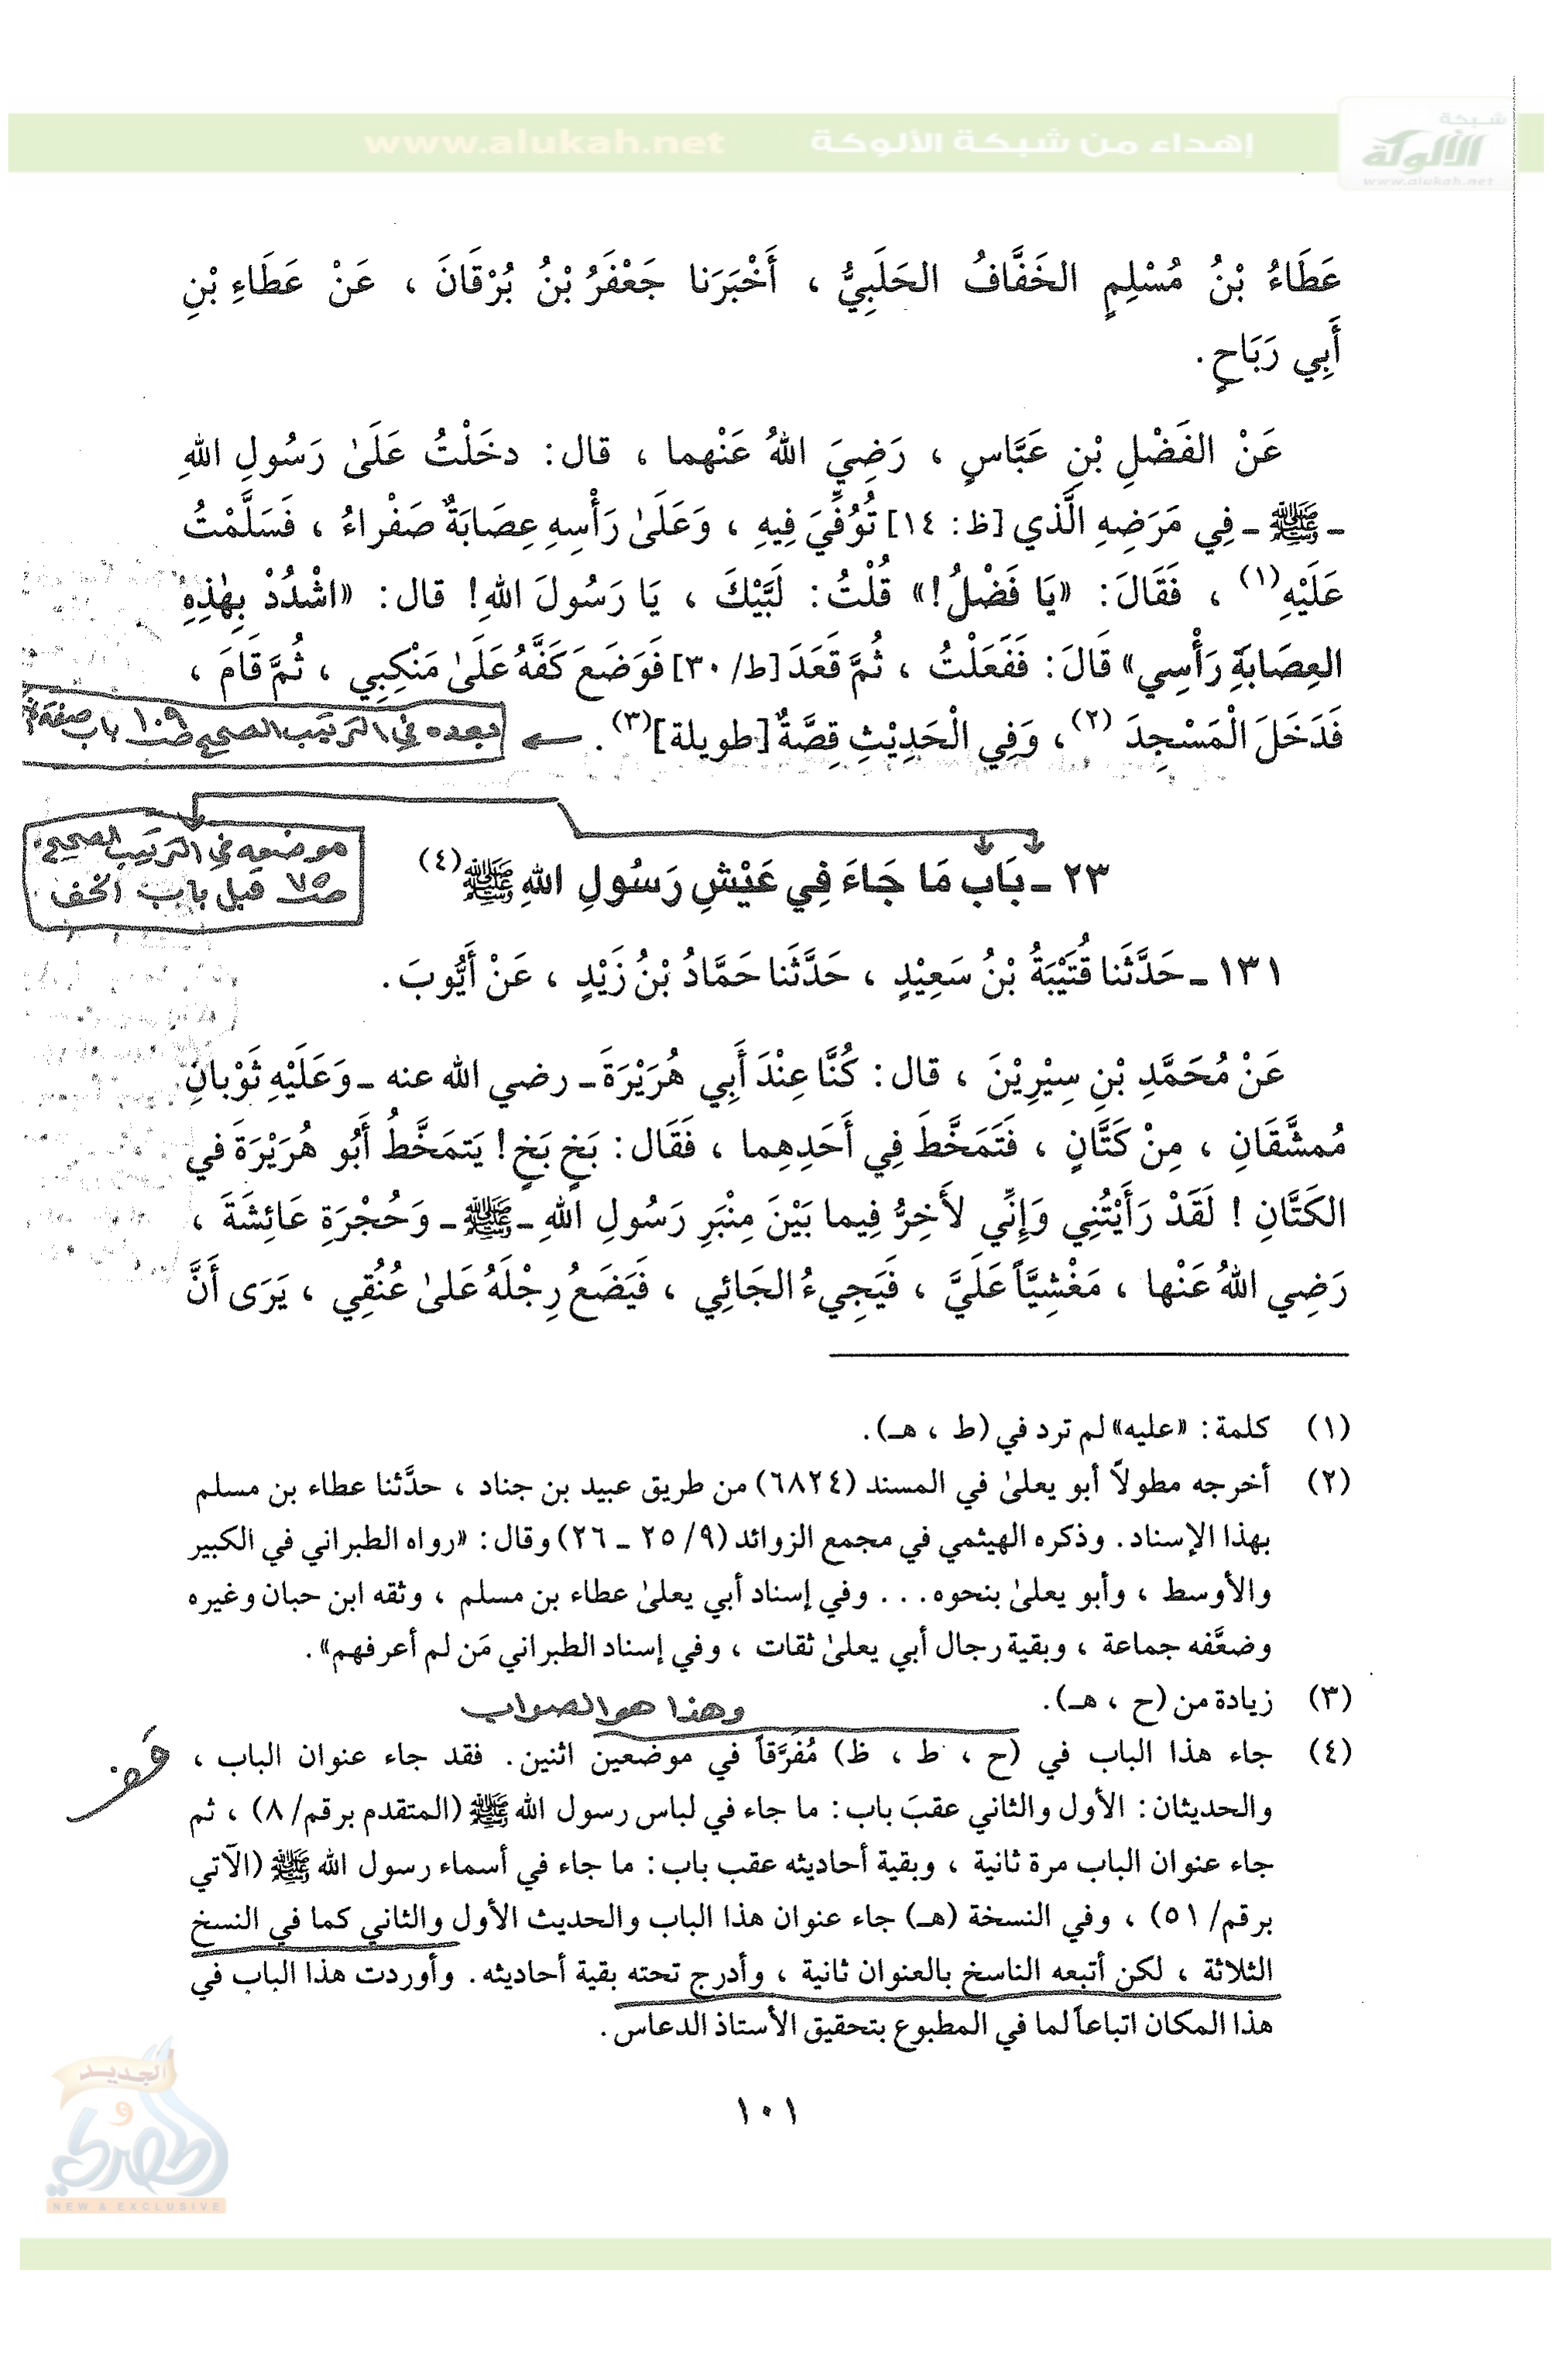 شبكة
الألوكة
www.alukah.net
إهداء من شبكة الألوكة www.alukah.net
عَطَاءُ بْنُ مُسْلِمٍ الخَفَّافُ الحَلَبِيُّ ، أَخْبَرَنا جَعْفَرُ بْنُ بُرْقَانَ ، عَنْ عَطَاءِ بْنِ
أَبِي رَبَاحٍ .
عَنْ الفَضْلِ بْنِ عَبَّاسٍ ، رَضِيَ اللهُ عَنْهما ، قال: دخَلْتُ عَلَىٰ رَسُولِ اللهِ
ـ ﷺ ـ فِي مَرَضِهِ الَّذي [ظ: ١٤] تُوُفِّيَ فِيهِ ، وَعَلَىٰ رَأْسِهِ عِصَابَةٌ صَفْراءُ ، فَسَلَّمْتُ
عَلَيْهِ(١) ، فَقَالَ: «يَا فَضْلُ!» قُلْتُ: لَبَّيْكَ ، يَا رَسُولَ اللهِ! قال: «اشْدُدْ بِهٰذِهِ
العِصَابَةِ رَأْسِي» قَالَ: فَفَعَلْتُ ، ثُمَّ قَعَدَ [ط/ ٣٠] فَوَضَعَ كَفَّهُ عَلَىٰ مَنْكِبِي ، ثُمَّ قَامَ ،
فَدَخَلَ الْمَسْجِدَ (٢)، وَفِي الْحَدِيْثِ قِصَّةٌ [طويلة](٣) .
بعده في الترتيب الصحيح ص ١٠٩ باب صفة
موضعه في الترتيب الصحيح
قبل باب الخف
٢٣ ـ بَاب مَا جَاءَ فِي عَيْشِ رَسُولِ اللهِ ﷺ(٤)
١٣١ ـ حَدَّثَنا قُتَيْبَةُ بْنُ سَعِيْدٍ ، حَدَّثَنا حَمَّادُ بْنُ زَيْدٍ ، عَنْ أَيُّوبَ .
عَنْ مُحَمَّدِ بْنِ سِيْرِيْنَ ، قال: كُنَّا عِنْدَ أَبِي هُرَيْرَةَ ـ رضي الله عنه ـ وَعَلَيْهِ ثَوْبانِ
مُمشَّقَانِ ، مِنْ كَتَّانٍ ، فَتَمَخَّطَ فِي أَحَدِهِما ، فَقَال: بَخٍ بَخٍ! يَتمَخَّطُ أَبُو هُرَيْرَةَ في
الكَتَّانِ ! لَقَدْ رَأَيْتُنِي وَإِنِّي لأَخِرُّ فِيما بَيْنَ مِنْبَرِ رَسُولِ اللهِ ـ ﷺ ـ وَحُجْرَةِ عَائِشَةَ ،
رَضِي اللهُ عَنْها ، مَغْشِيَّاً عَلَيَّ ، فَيَجِيءُ الجَائِي ، فَيَضَعُ رِجْلَهُ عَلىٰ عُنُقِي ، يَرَى أَنَّ
(١) كلمة: «عليه» لم ترد في (ط ، هـ).
(٢) أخرجه مطولاً أبو يعلىٰ في المسند (٦٨٢٤) من طريق عبيد بن جناد ، حدَّثنا عطاء بن مسلم
بهذا الإسناد. وذكره الهيثمي في مجمع الزوائد (٩/ ٢٥ ـ ٢٦) وقال: «رواه الطبراني في الكبير
والأوسط ، وأبو يعلىٰ بنحوه. . . وفي إسناد أبي يعلىٰ عطاء بن مسلم ، وثقه ابن حبان وغيره
وضعَّفه جماعة ، وبقية رجال أبي يعلىٰ ثقات ، وفي إسناد الطبراني مَن لم أعرفهم».
(٣) زيادة من (ح ، هـ).
وهذا هو الصواب
(٤) جاء هذا الباب في (ح ، ط ، ظ) مُفَرَّقاً في موضعين اثنين. فقد جاء عنوان الباب ،
قف
والحديثان: الأول والثاني عقبَ باب: ما جاء في لباس رسول الله ﷺ (المتقدم برقم/ ٨) ، ثم
جاء عنوان الباب مرة ثانية ، وبقية أحاديثه عقب باب: ما جاء في أسماء رسول الله ﷺ (الآتي
برقم/ ٥١) ، وفي النسخة (هـ) جاء عنوان هذا الباب والحديث الأول والثاني كما في النسخ
الثلاثة ، لكن أتبعه الناسخ بالعنوان ثانية ، وأدرج تحته بقية أحاديثه. وأوردت هذا الباب في
هذا المكان اتباعاً لما في المطبوع بتحقيق الأستاذ الدعاس.
١٠١
الجديد
و
الحصري
NEW & EXCLUSIVE